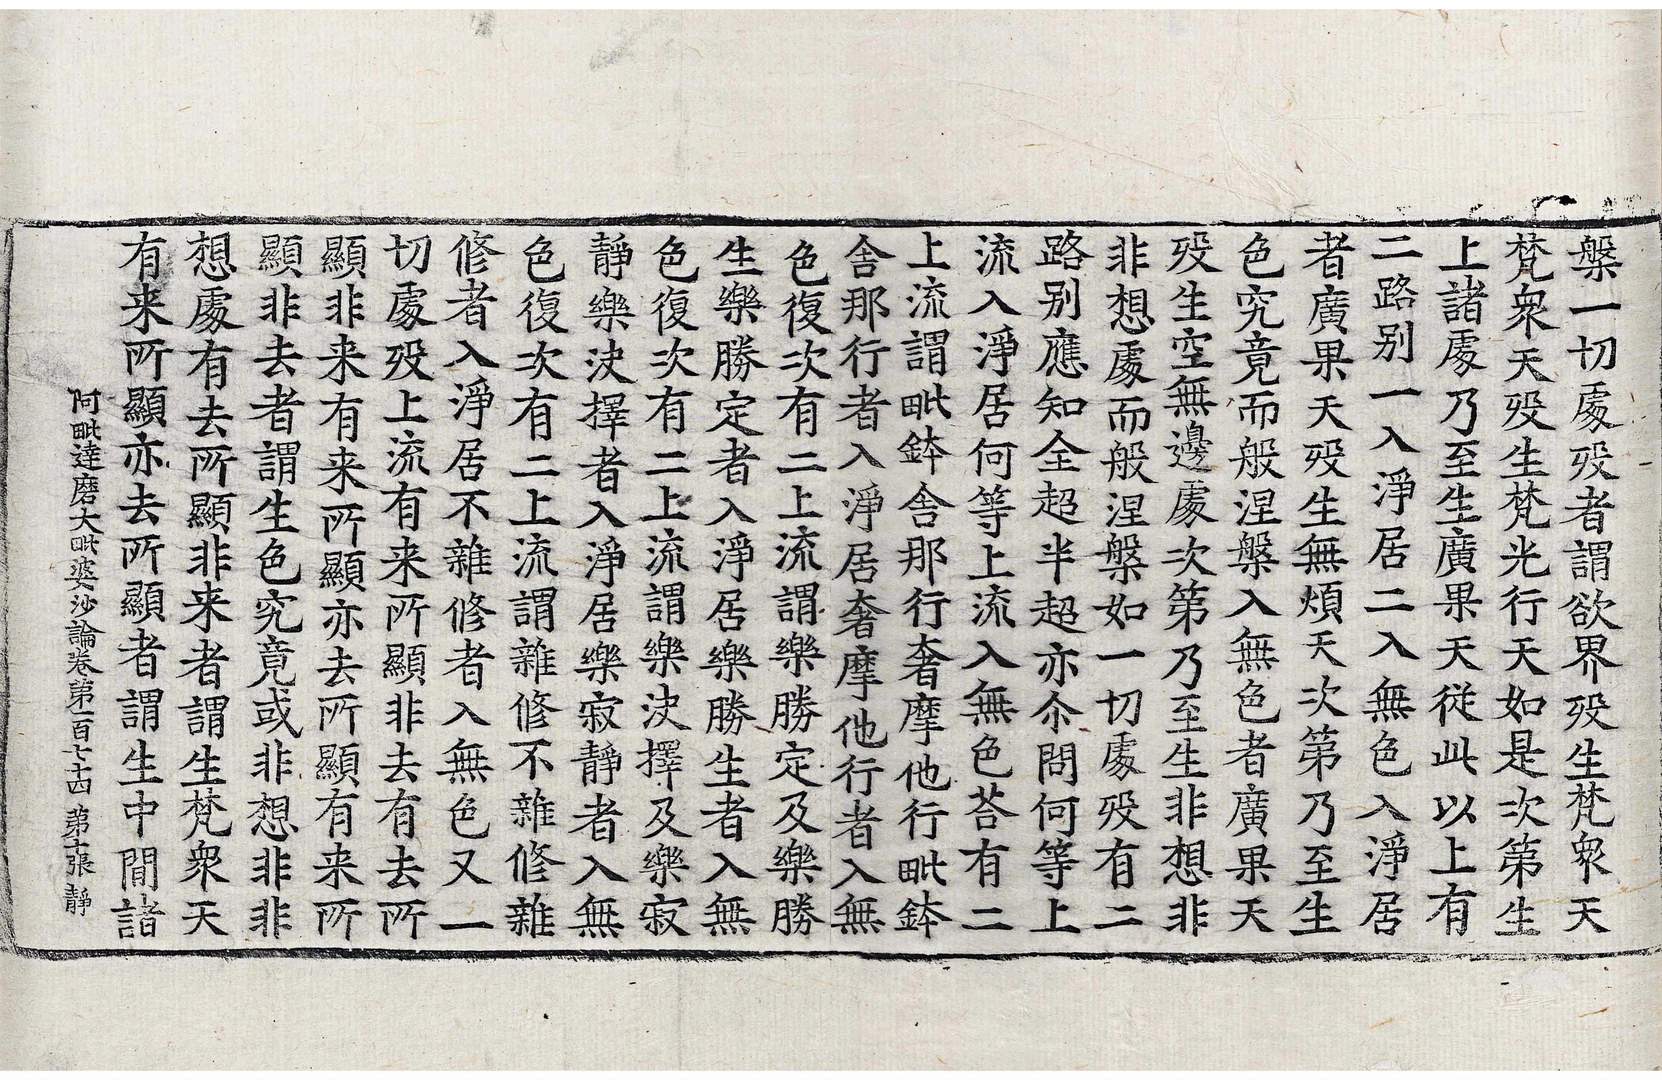 槃一切處歿者謂欲界歿生梵衆天
梵衆天歿生梵光行天如是次第生
上諸處乃至生廣果天從此以上有
二路别一入淨居二入無色入淨居
者廣果天歿生無煩天次第乃至生
色究竟而般涅槃入無色者廣果天
歿生空無邊處次第乃至生非想非
非想處而般涅槃如一切處歿有二
路别應知全超半超亦尒問何等上
流入淨居何等上流入無色荅有二
上流謂毗鉢舍那行奢摩他行毗鉢
舍那行者入淨居奢摩他行者入無
色復次有二上流謂樂勝定及樂勝
生樂勝定者入淨居樂勝生者入無
色復次有二上流謂樂决擇及樂寂
靜樂决擇者入淨居樂寂靜者入無
色復次有二上流謂雜修不雜修雜
修者入淨居不雜修者入無色又一
切處歿上流有来所顯非去有去所
顯非来有来所顯亦去所顯有来所
顯非去者謂生色究竟或非想非非
想處有去所顯非来者謂生梵衆天
有来所顯亦去所顯者謂生中間諸
阿毗達磨大毗婆沙論卷第一百七十四 第十張 靜